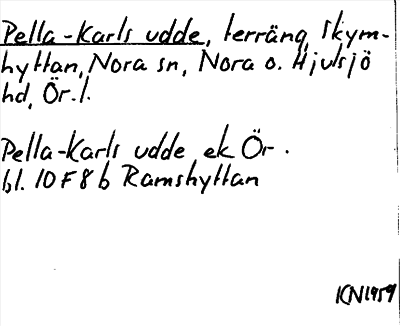 Pella-Karls udde, terräng, Skym-
hyttan, Nora sn, Nora o. Hjulsjö
hd, Ör.l.
Pella-Karls udde ek Ör.
bl. 10 F 8 b Ramshyttan
KN1959